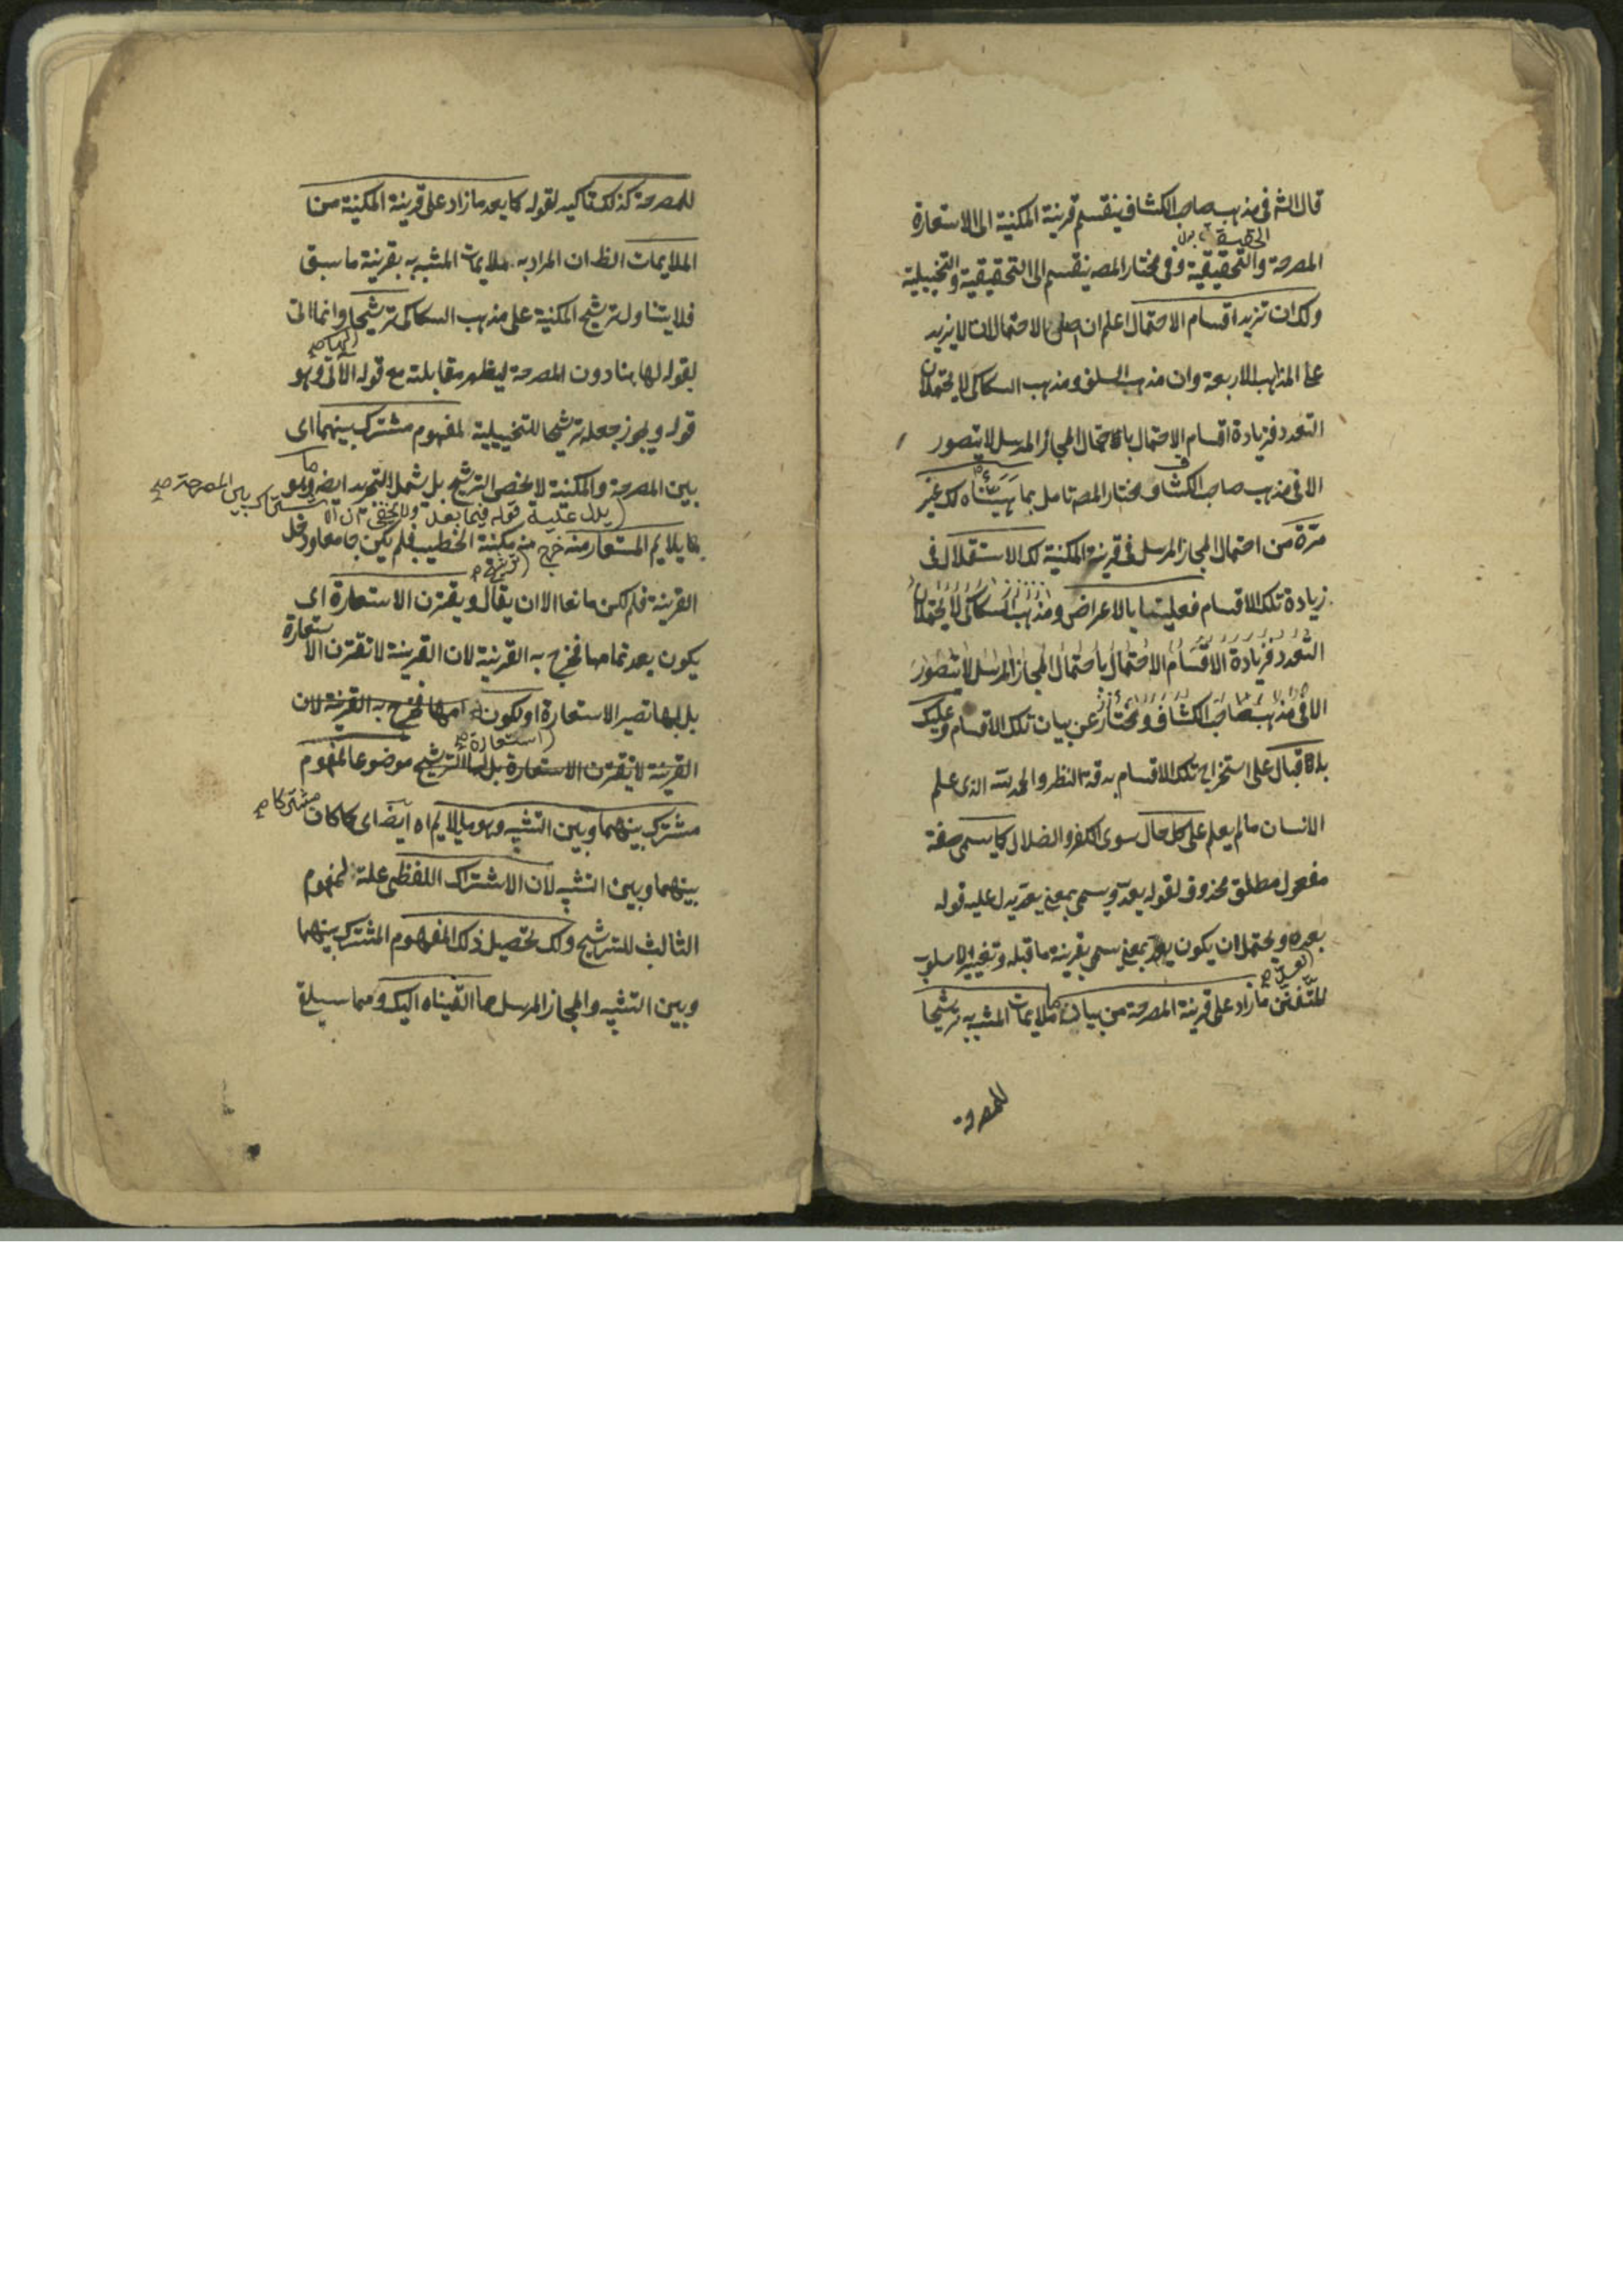 قال الشم فى مذهب صاحب الكشاف ينقسم قرينة المكنية الى الاستعارة
المصرحة والتحقيقية وفى مختار المص ينقسم الى التحقيقية والتخييلية
ولك ان تزيد اقسام الاحتمال اعلم ان اصل الاحتمالات لا يزيد
على المذاهب الاربعة وان مذهب السلف ومذهب السكاكى لا يحتملان
التعدد فزيادة اقسام الاحتمال باحتمال المجاز المرسل لا يتصور
الا فى مذهب صاحب الكشاف ومختار المص تامل بما هيئناه لك غير
مرة من احتمال المجاز المرسل فى قرينة المكنية لك الاستقلال فى
زيادة تلك الاقسام فعليتنا بالاعراض ومذهب السكاكى لا يحتملان
التعدد فزيادة الاقسام الاحتمال باحتمال المجاز المرسل لا يتصور
الا فى مذهب صاحب الكشاف ومختار عن بيان تلك الاقسام وعليك
بالاقبال على استخراج تلك الاقسام بدقة النظر والحمد لله الذى علم
الانسان ما لم يعلم على كل حال سوى الكفر والضلال كما يسمى صفة
مفعول مطلق محذوف لقوله يعد ويسمى بمعنى يعد يدل عليه قوله
بعده ويحتمل ان يكون يعد بمعنى يسمى بقرينة ما قبله وتغيير الاسلوب
للتفنن ما زاد على قرينة المصرحة من بيان ما ملايمات المشبه به ترشيحا
للمصرحة
للمصرحة كذلك تاكيد لقوله كما يعد ما زاد على قرينة المكنية من
الملايمات الظ ان المراد به ملايمات المشبه به بقرينة ما سبق
فلا يتناول ترشيح المكنية على مذهب السكاكى ترشيحا وانما اتى
بقوله لها هنا دون المصرحة ليظهر مقابلته مع قوله الآتى وهو
قوله ويجوز جعله ترشيحا للتخييلية لمفهوم مشترك بينهما اى
بين المصرحة والمكنية لا يخص الترشيح بل يشمل التجريد ايضا وهو
يدل عليه قوله فيما بعد ولا يخفى ان الا
ما يلايم المستعار منه خرج منه مكنية الخطيب فلم يكن جامعا ودخل
القرينة فلم يكن مانعا الا ان يقال ويقترن الاستعارة اى
يكون بعد تمامها فخرج به القرينة لان القرينة لا تقترن الاستعارة
بل بها تصير الاستعارة او يكون امها فخرج به القرينة لان
القرينة لا تقترن الاستعارة بل الترشيح موضوعا لمفهوم
مشترك بينهما وبين التشبيه وهو ما يلايم اه ايضا اى كما كان
بينهما وبين التشبيه لان الاشتراك اللفظى علة لمفهوم
الثالث للترشيح ولك تحصيل ذلك المفهوم المشترك بينهما
وبين التشبيه والمجاز المرسل مما القيناه اليك ومما سيلق